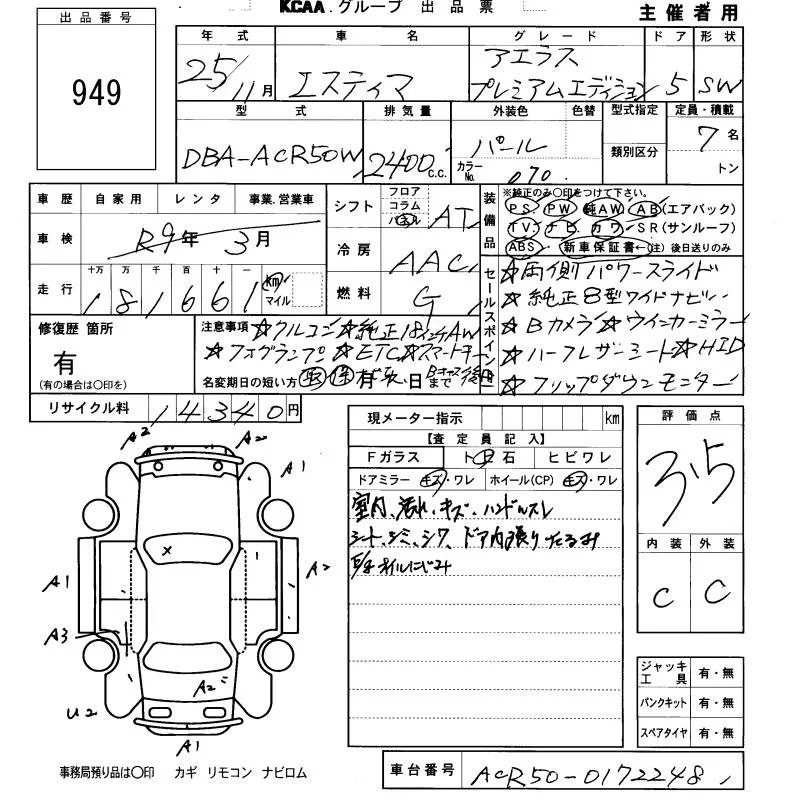 KCAA.グループ 出品票
主催者用
出品番号
949
年式 車名 グレード ドア 形状
25/11月 エスティマ アエラス プレミアムエディション 5 SW
型式 排気量 外装色 色替 型式指定 定員・積載
類別区分
DBA-ACR50W 2400c.c. パール 7名
カラーNo. 070 トン
車歴 自家用 レンタ 事業.営業車
車検 R9年 3月
走行 十万 万 千 百 十 一
181661 km マイル
シフト フロア コラム パネル AT
冷房 AAC
燃料 G
装備品
※純正のみ〇印をつけて下さい。
PS PW 純AW AB(エアバック)
TV ナビ カワ SR(サンルーフ)
ABS 新車保証書←注)後日送りのみ
セールスポイント
☆両側パワースライド
☆純正8型ワイドナビ
☆Bカメラ☆ウインカーミラー
☆ハーフレザーシート☆HID
☆フリップダウンモニター
修復歴 箇所
有
(有の場合は〇印を)
注意事項 ☆クルコン☆純正18インチAW
☆フォグランプ☆ETC☆スマートキー
名変期日の短い方
日 まで
リサイクル料 14340円
現メーター指示 km
【査定員記入】
Fガラス ト 石 ヒビワレ
ドアミラー キズ・ワレ ホイール(CP) キズ・ワレ
室内、汚れ・キズ・ハンドルスレ
シート、シミ、シワ、ドア内張りたるみ
オイルにじみ
評価点
3.5
内装 外装
C C
ジャッキ工具 有・無
パンクキット 有・無
スペアタイヤ 有・無
A2 A2
A1
×
A1 A2
A3
A2
U2
A1
事務局預り品は〇印 カギ リモコン ナビロム
車台番号 ACR50-0172248